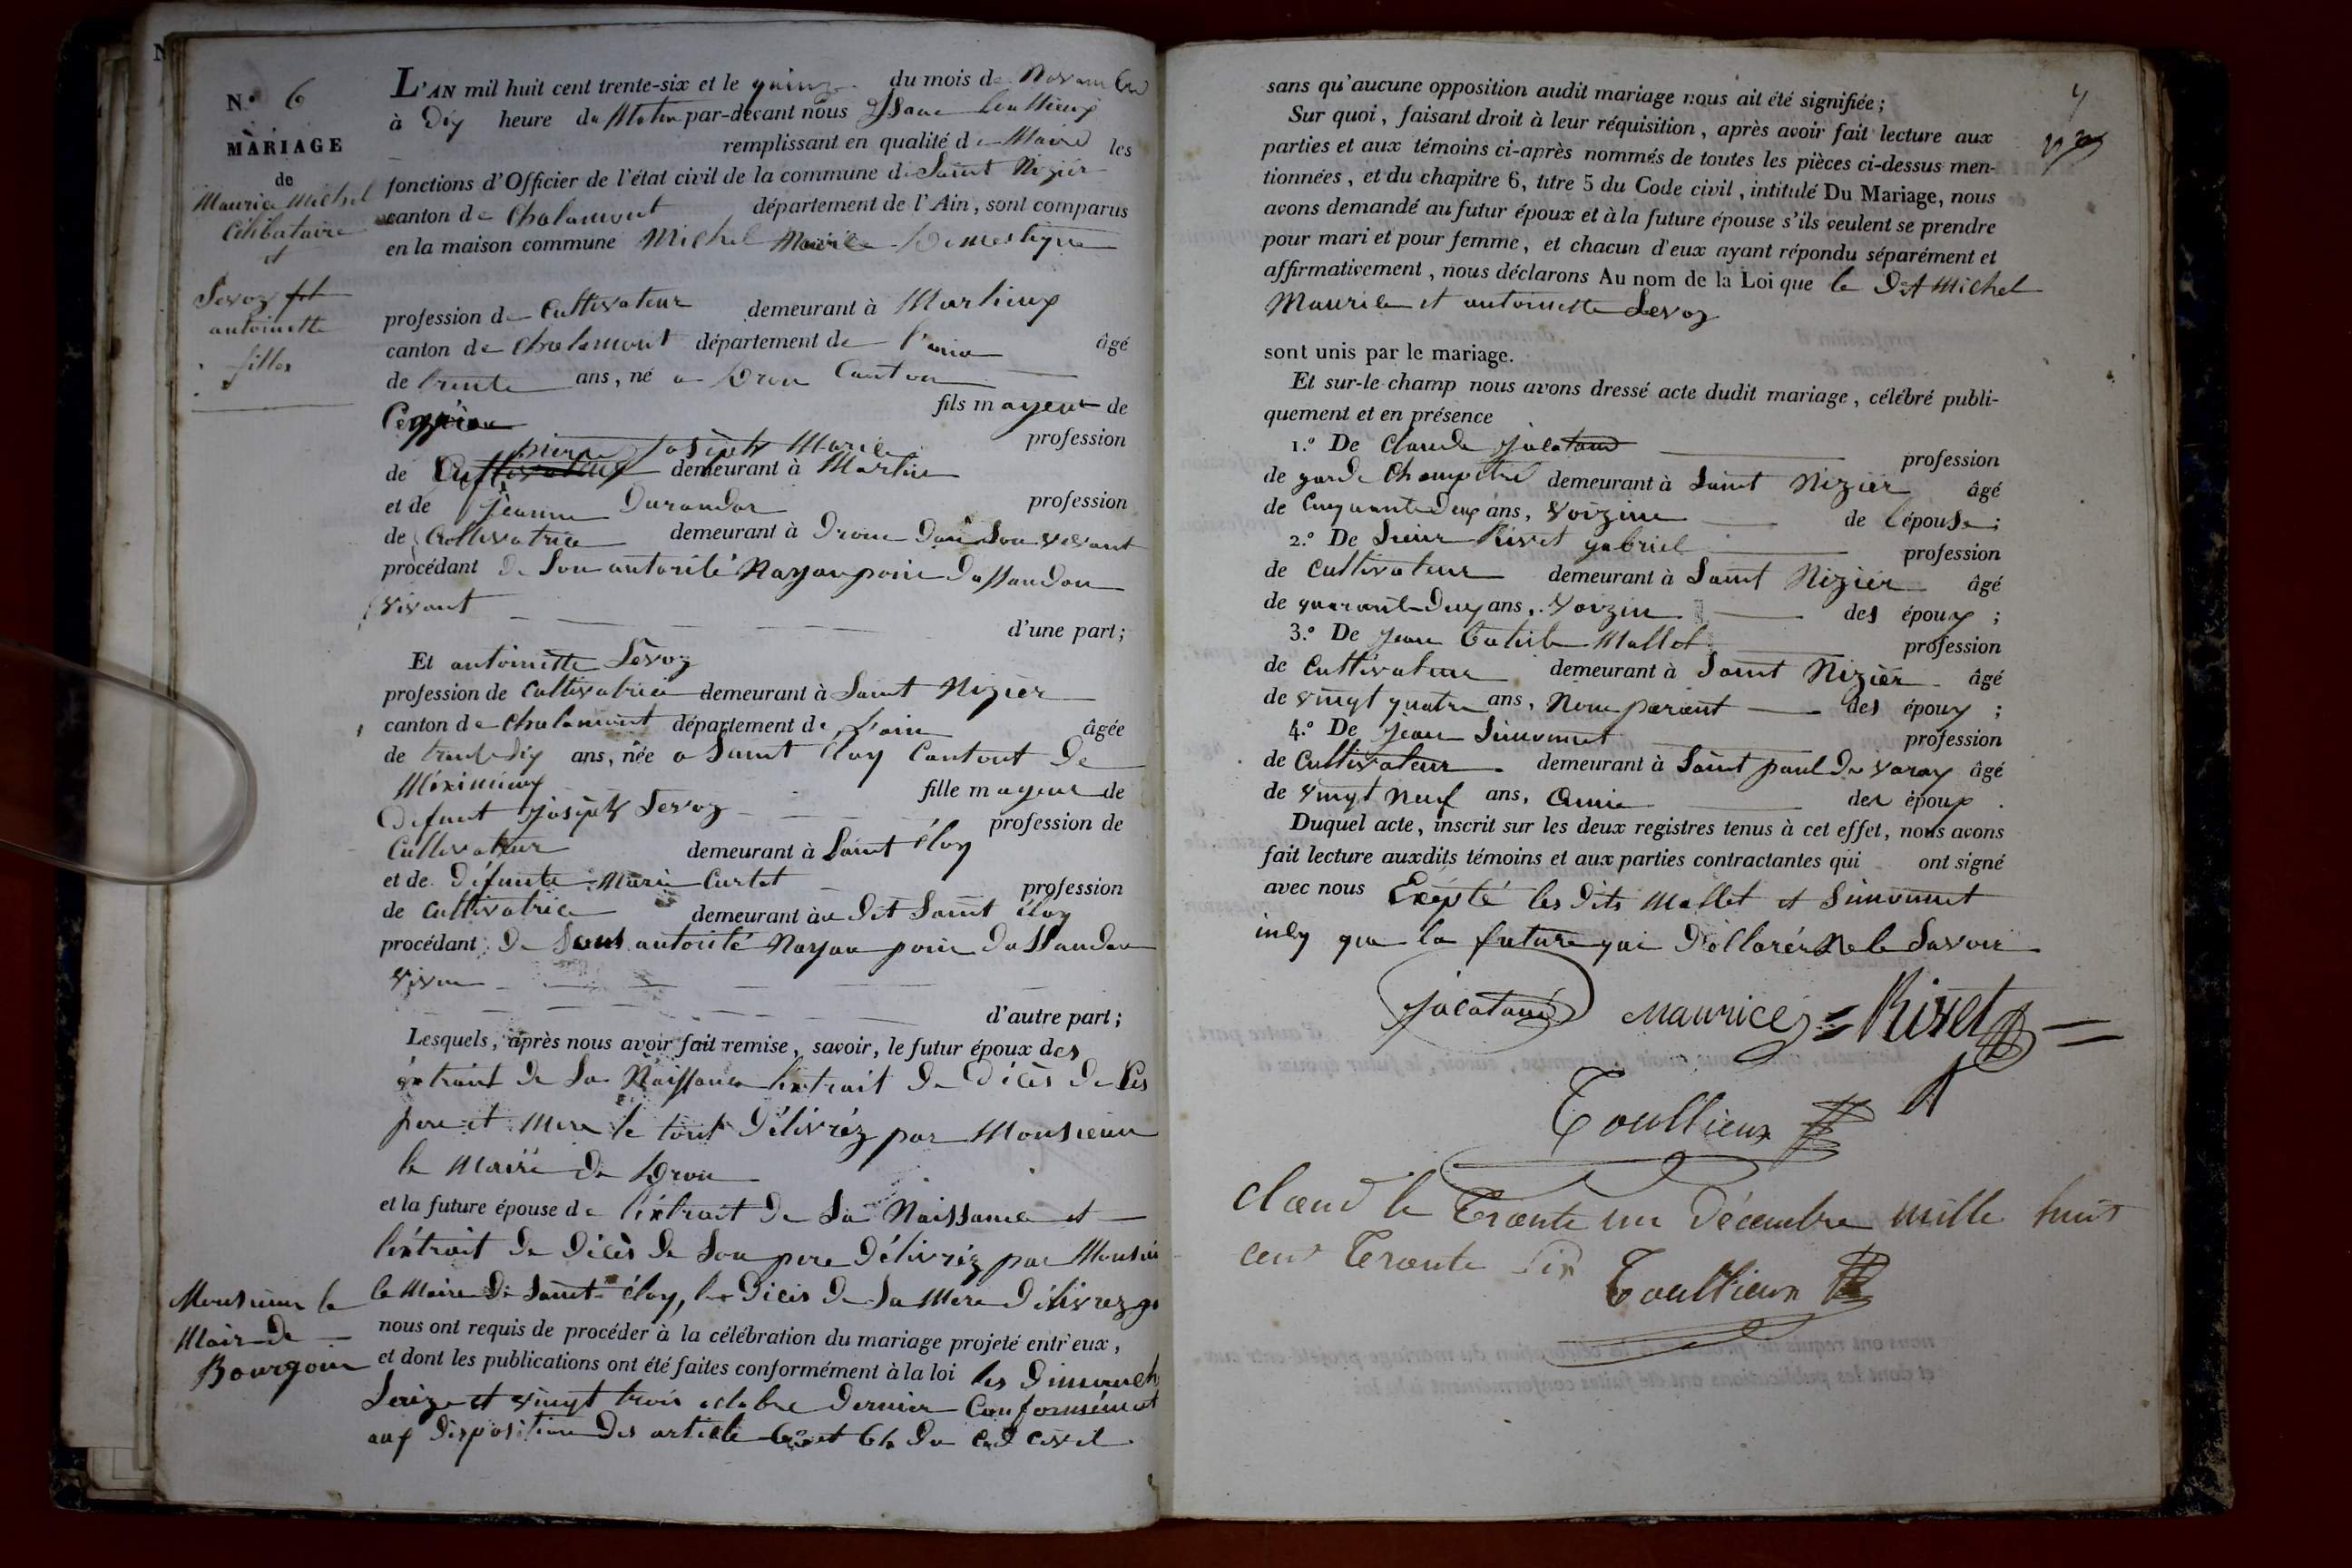 N.º 6
MARIAGE
de
Maurice Michel
Célibataire
et
Sevoz
antoinette
filles
L'AN mil huit cent trente-six et le quinze du mois de Novembre
à dix heure du Matin par-devant nous Isaac Toullieux
remplissant en qualité de Maire les
fonctions d'Officier de l'état civil de la commune de Saint Nizier
canton de Chalamont département de l'Ain, sont comparus
en la maison commune Michel Maurice Domestique
profession de Cultivateur demeurant à Marlieux
canton de Chalamont département de l'ain âgé
de trente ans, né a Dron Canton
fils mayeur de
pierre Joseph Marice profession
de Cultivateur demeurant à Marlieu
et de Jeanne Durandar profession
de Cultivatrice demeurant à Drom dans Son vivant
procédant de Son autorité Nayan poin dassandan
vivant
d'une part;
Et antoinette Sevoz
profession de Cultivatrice demeurant à Saint Nizier
canton de Chalamont département de l'ain âgée
de trente dix ans, née a Saint Eloy Cantont de
Méximieux fille mayeur de
défunt Joseph Sevoz profession de
Cultivateur demeurant à Saint éloy
et de défunte Marie Curtet profession
de Cultivatrice demeurant àu dit Saint éloy
procédant de Sont autorité Nayan poin dassandan
vivan
d'autre part;
Lesquels, après nous avoir fait remise, savoir, le futur époux des
éxtraint de Sa Naissance lextrait de Décès de Ses
pere et Mere le tout délivréz par Monsieur
le Maire de Dron
et la future épouse de l'éxtrait de Sa Naissance et
l'éxtrait de décès de Son pere délivréz par Monsieu
le Maire de Saint éloy, le décès de Sa Mere délivrez p
Monsieur le
Mair de
Bourgoin
nous ont requis de procéder à la célébration du mariage projeté entr'eux,
et dont les publications ont été faites conformément à la loi les dimanch
Seize et vingt trois octobre dernier Conformément
aux disposition des article 63 et 64 du Cod civil
sans qu'aucune opposition audit mariage nous ait été signifiée;
Sur quoi, faisant droit à leur réquisition, après avoir fait lecture aux
parties et aux témoins ci-après nommés de toutes les pièces ci-dessus men-
tionnées, et du chapitre 6, titre 5 du Code civil, intitulé Du Mariage, nous
avons demandé au futur époux et à la future épouse s'ils veulent se prendre
pour mari et pour femme, et chacun d'eux ayant répondu séparément et
affirmativement, nous déclarons Au nom de la Loi que le dit Michel
Maurice et antoinette Sevoz
sont unis par le mariage.
Et sur-le-champ nous avons dressé acte dudit mariage, célébré publi-
quement et en présence
1.º De Claude Jacataud profession
de garde Champetre demeurant à Saint Nizier âgé
de Cinquante deux ans, Voizin de l'épouse;
2.º De Sieur Rivet gabriel profession
de Cultivateur demeurant à Saint Nizier âgé
de quarante deux ans, Voizin des époux;
3.º De Jean Batiste Mallet profession
de Cultivateur demeurant à Saint Nizier âgé
de vingt quatre ans, Nom parent des époux;
4.º De Jean Simonnet profession
de Cultivateur demeurant à Saint paul de varax âgé
de vingt neuf ans, Amie des époux.
Duquel acte, inscrit sur les deux registres tenus à cet effet, nous avons
fait lecture auxdits témoins et aux parties contractantes qui ont signé
avec nous Exépté les dits Mallet et Simonnet
insy que la future qui déllarés Ne le Savoir
Jacataud Maurice Rivet
Toullieux
Cloend le trante un décembre mille huit
cent trante Six
Toullieux